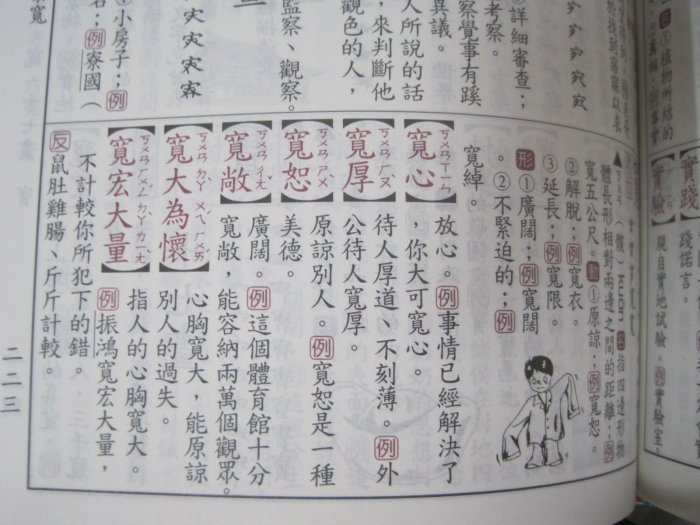 ①詳細審查;
考察。
察覺事有蹊
異議。
人所說的話
,來判斷他
觀色的人,
監察、觀察。
①小房子;例
名。例寮國(
實踐
踐諾言。
實驗
親自實地試驗。例實驗室。
體長形相對兩邊之間的距離;例
寬五公尺。動①原諒;例寬恕。
②解脫;例寬衣。
③延長;例寬限。
形①廣闊;例寬闊
。②不緊迫的;例
寬綽。
【寬心】ㄎㄨㄢ ㄒㄧㄣ
放心。例事情已經解決了
,你大可寬心。
【寬厚】ㄎㄨㄢ ㄏㄡˋ
待人厚道、不刻薄。例外
公待人寬厚。
【寬恕】ㄎㄨㄢ ㄕㄨˋ
原諒別人。例寬恕是一種
美德。
【寬敞】ㄎㄨㄢ ㄔㄤˇ
廣闊。例這個體育館十分
寬敞,能容納兩萬個觀眾。
【寬大為懷】ㄎㄨㄢ ㄉㄚˋ ㄨㄟˊ ㄏㄨㄞˊ
心胸寬大,能原諒
別人的過失。
【寬宏大量】ㄎㄨㄢ ㄏㄨㄥˊ ㄉㄚˋ ㄌㄧㄤˋ
指人的心胸寬大。
例振鴻寬宏大量,
不計較你所犯下的錯。
反鼠肚雞腸、斤斤計較。
二二三